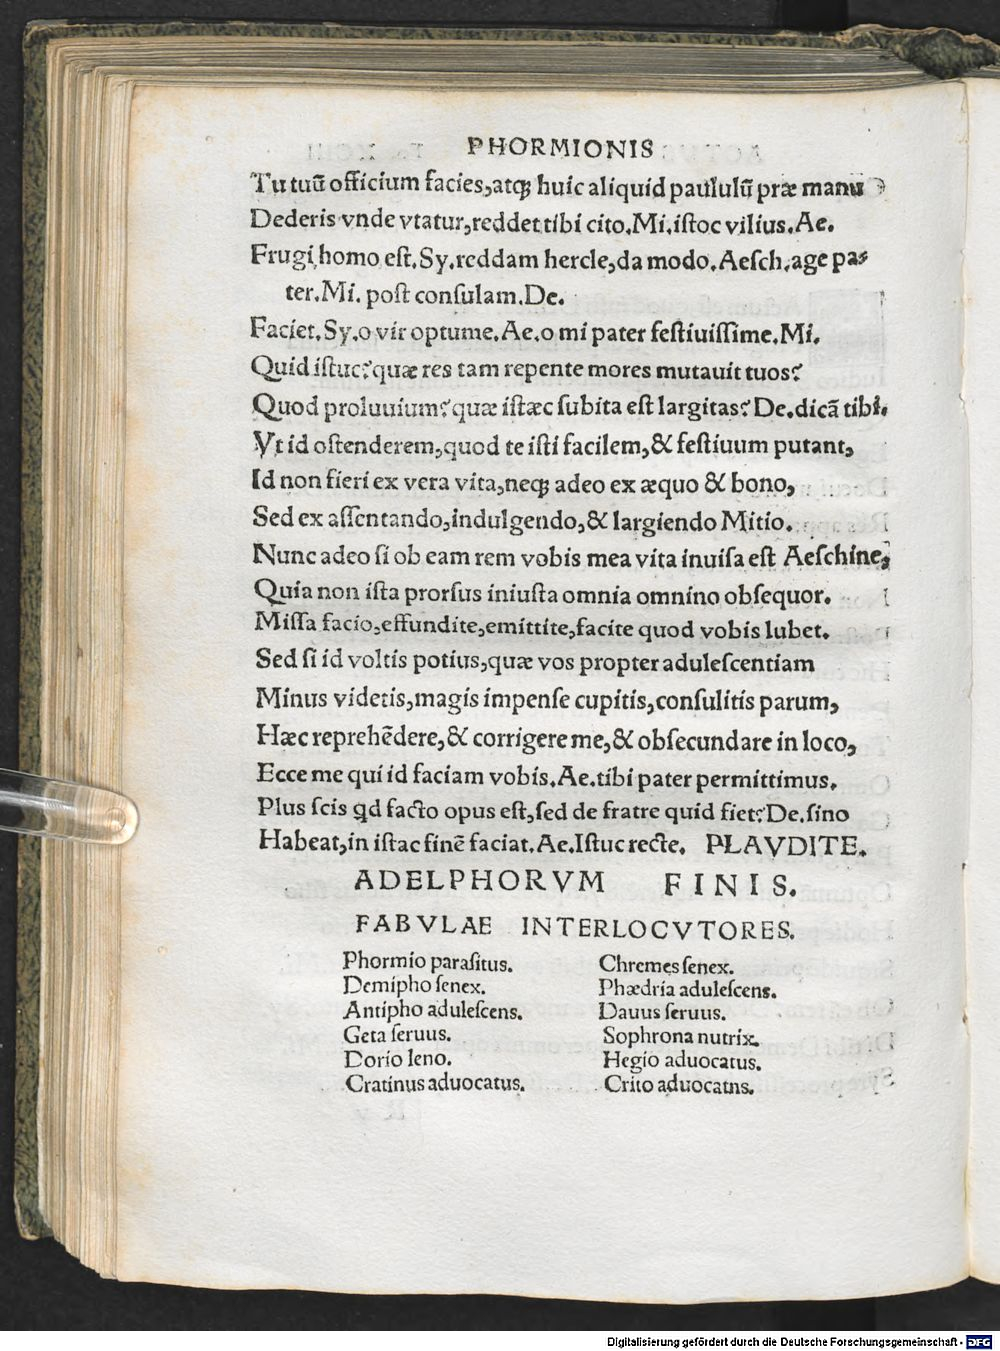 PHORMIONIS
Tu tuũ officium facies,atqꝫ huic aliquid paululũ præ manu
Dederis vnde vtatur,reddet tibi cito.Mi.iſtoc vilius.Ae.
Frugi homo eſt.Sy.reddam hercle,da modo.Aeſch.age pa-
ter.Mi. poſt conſulam.De.
Faciet.Sy.o vir optume.Ae.o mi pater feſtiuiſſime.Mi.
Quid iſtuc?quæ res tam repente mores mutauit tuos?
Quod proluuium?quæ iſtæc ſubita eſt largitas?De.dicã tibi.
Vt id oſtenderem,quod te iſti facilem,& feſtiuum putant,
Id non fieri ex vera vita,neqꝫ adeo ex æquo & bono,
Sed ex aſſentando,indulgendo,& largiendo Mitio.
Nunc adeo ſi ob eam rem vobis mea vita inuiſa eſt Aeſchine,
Quia non iſta prorſus iniuſta omnia omnino obſequor.
Miſſa facio,effundite,emittite,facite quod vobis lubet.
Sed ſi id voltis potius,quæ vos propter aduleſcentiam
Minus videtis,magis impenſe cupitis,conſulitis parum,
Hæc reprehẽdere,& corrigere me,& obſecundare in loco,
Ecce me qui id faciam vobis.Ae.tibi pater permittimus.
Plus ſcis qd facto opus eſt,ſed de fratre quid fiet?De.ſino
Habeat,in iſtac finẽ faciat.Ae.Iſtuc recte. PLAVDITE.
ADELPHORVM FINIS.
FABVLAE INTERLOCVTORES.
Phormio paraſitus. Chremes ſenex.
Demipho ſenex. Phædria aduleſcens.
Antipho aduleſcens. Dauus ſeruus.
Geta ſeruus. Sophrona nutrix.
Dorio leno. Hegio aduocatus.
Cratinus aduocatus. Crito aduocatus.
Digitalisierung gefördert durch die Deutsche Forschungsgemeinschaft - DFG